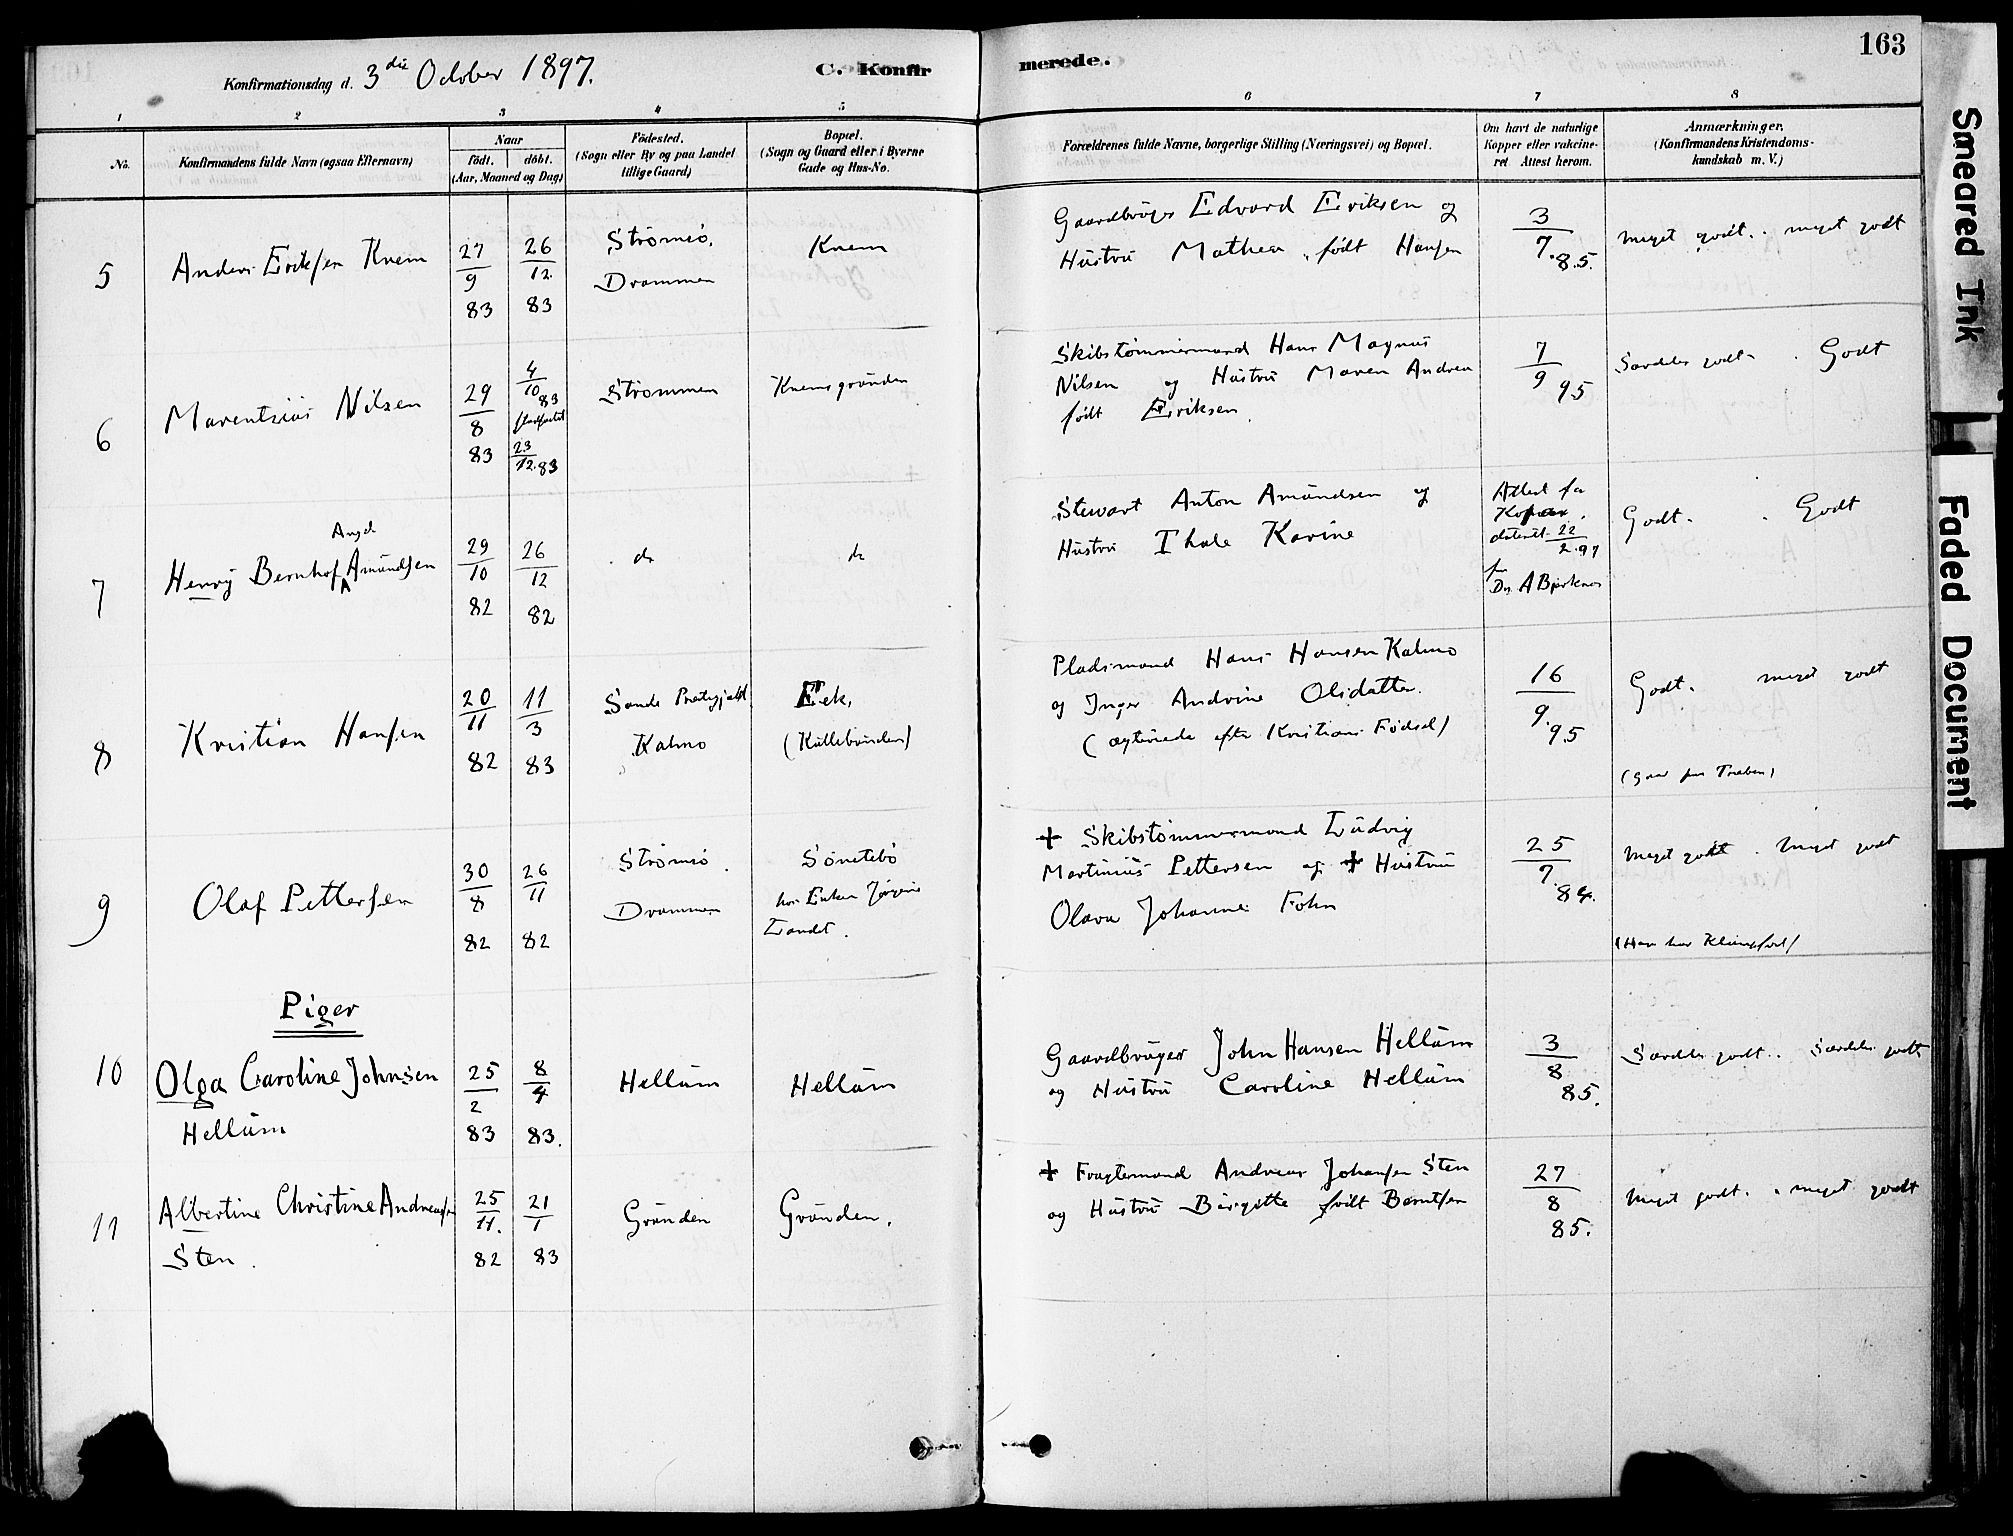 163
Konfirmationsdag d. 3die October 1897.
C. Konfirmerede.
1 2 3 4 5 6 7 8
No.
Konfirmandens fulde Navn (ogsaa Efternavn)
Naar
født. døbt.
(Aar, Maaned og Dag)
Fødested.
(Sogn eller By og paa Landet
tillige Gaard)
Bopæl.
(Sogn og Gaard eller i Byerne
Gade og Hus-No.
Forældrenes fulde Navne, borgerlige Stilling (Næringsvei) og Bopæl.
Om havt de naturlige
Kopper eller vakcine-
ret Attest herom.
Anmærkninger.
(Konfirmandens Kristendoms-
kundskab m. V.)
5
Anders Eriksen Knem
27/9 83
26/12 83
Strømsø,
Drammen
Knem
Gaardbruger Edvard Eriksen og
Hustru Mathea, født Hansen
3/7.85.
meget godt. . meget godt
6
Marentzius Nilsen
29/8 83
4/10 83
stadfæstet
23/12.83
Strømmen
Knemsgrunden
Skibstømmermand Hans Magnus
Nilsen og Hustru Maren Andrea
født Eriksen.
7/9 95
Særdeles godt . Godt
7
Henry Bernhof Amundsen
29/10 82
26/12 82
do
do
Stewart Anton Amundsen og
Hustru Thale Karine
Attest for
dateret 22/2.97
fra
Dr. A Bjerknes
Godt. . Godt
8
Kristian Hansen
20/11 82
11/3 83
Sande Præstegjæld
Kalmo
Eek,
Pladsmand Hans Hansen Kalmo
og Inger Andrine Olsdatter.
(ægteviede efter Kristians Fødsel)
16/9.95
Godt. meget godt
9
Olaf Pettersen
30/8 82
26/11 82
Strømsø.
Drammen
Sønetebø
hos Enken Jørgine
+ Skibstømmermand Ludvig
Martinius Pettersen og + Hustru
Olava Johanne Fohn
25/7.84.
meget godt . meget godt
Piger
10
Olga Caroline Johnsen
Hellum
25/2 83
8/4 83.
Hellum
Hellum
Gaardbruger John Hansen Hellum
og Hustru Caroline Hellum
3/8 85.
Særdeles godt. . Særdeles godt
11
Albertine Christine Andreasen
Sten.
25/11. 82
21/1 83
Grunden
Grunden.
+ Fragtemand Andreas Johansen Sten
og Hustru Birgitte født Berntsen
27/8 85.
meget godt. . meget godt
Smeared Ink
Faded Document